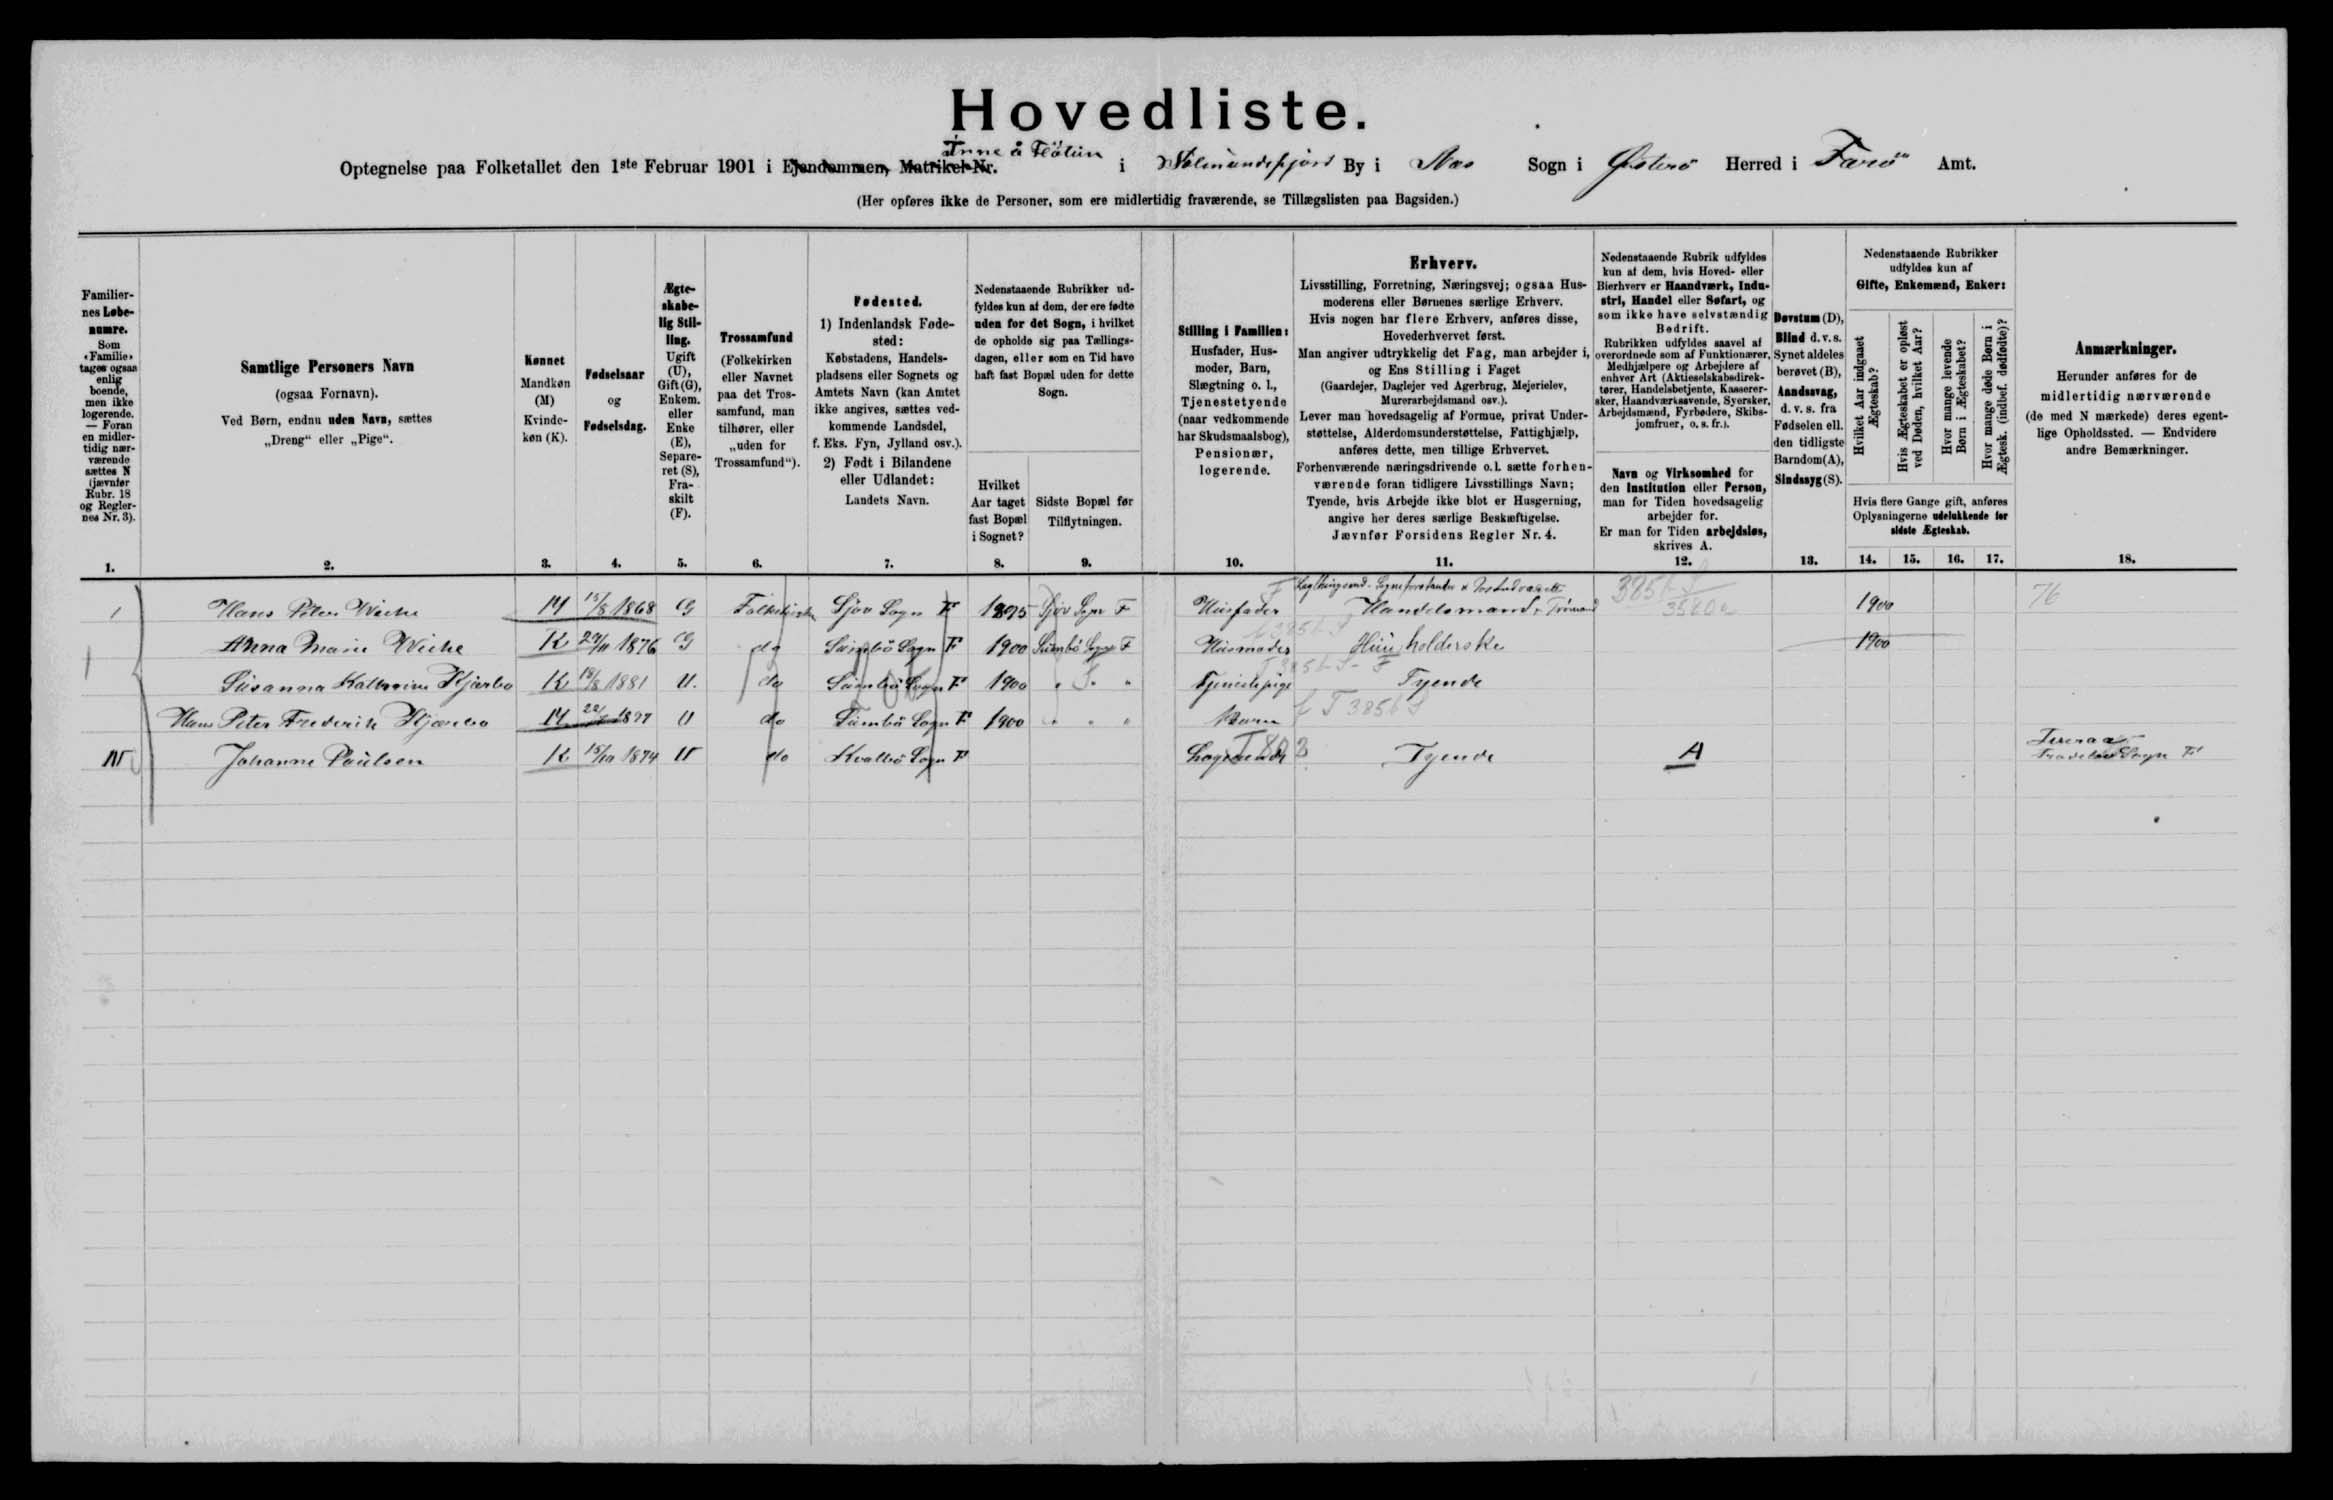 Hovedliste.
Inne å Flötun
Optegnelse paa Folketallet den 1ste Februar 1901 i Ejendommen, Matrikel-Nr. i Solmundefjord By i Næs Sogn i Østerø Herred i Færø Amt.
(Her opføres ikke de Personer, som ere midlertidig fraværende, se Tillægslisten paa Bagsiden.)
Familier-
nes Løbe-
numre.
Som
«Familie»
tages ogsaa
enlig
boende,
men ikke
logerende.
— Foran
en midler-
tidig nær-
værende
sættes N
(jævnfør
Rubr. 18
og Regler-
nes Nr. 3).
1.
Samtlige Personers Navn
(ogsaa Fornavn).
Ved Børn, endnu uden Navn, sættes
„Dreng“ eller „Pige“.
2.
Kønnet
Mandkøn
(M)
Kvinde-
køn (K).
3.
Fødselsaar
og
Fødselsdag.
4.
Ægte-
skabe-
lig Stil-
ling.
Ugift
(U),
Gift (G),
Enkem.
eller
Enke
(E),
Separe-
ret (S),
Fra-
skilt
(F).
5.
Trossamfund
(Folkekirken
eller Navnet
paa det Tros-
samfund, man
tilhører, eller
„uden for
Trossamfund“).
6.
Fødested.
1) Indenlandsk Føde-
sted:
Købstadens, Handels-
pladsens eller Sognets og
Amtets Navn (kan Amtet
ikke angives, sættes ved-
kommende Landsdel,
f. Eks. Fyn, Jylland osv.).
2) Født i Bilandene
eller Udlandet:
Landets Navn.
7.
Nedenstaaende Rubrikker ud-
fyldes kun af dem, der ere fødte
uden for det Sogn, i hvilket
de opholde sig paa Tællings-
dagen, eller som en Tid have
haft fast Bopæl uden for dette
Sogn.
Hvilket
Aar taget
fast Bopæl
i Sognet?
8.
Sidste Bopæl før
Tilflytningen.
9.
Stilling i Familien:
Husfader, Hus-
moder, Barn,
Slægtning o. l.,
Tjenestetyende
(naar vedkommende
har Skudsmaalsbog),
Pensionær,
logerende.
10.
Erhverv.
Livsstilling, Forretning, Næringsvej; ogsaa Hus-
moderens eller Børnenes særlige Erhverv.
Hvis nogen har flere Erhverv, anføres disse,
Hovederhvervet først.
Man angiver udtrykkelig det Fag, man arbejder i,
og Ens Stilling i Faget
(Gaardejer, Daglejer ved Agerbrug, Mejerielev,
Murerarbejdsmand osv.).
Lever man hovedsagelig af Formue, privat Under-
støttelse, Alderdomsunderstøttelse, Fattighjælp,
anføres dette, men tillige Erhvervet.
Forhenværende næringsdrivende o. l. sætte forhen-
værende foran tidligere Livsstillings Navn;
Tyende, hvis Arbejde ikke blot er Husgerning,
angive her deres særlige Beskæftigelse.
Jævnfør Forsidens Regler Nr. 4.
11.
Nedenstaaende Rubrik udfyldes
kun af dem, hvis Hoved- eller
Bierhverv er Haandværk, Indu-
stri, Handel eller Søfart, og
som ikke have selvstændig
Bedrift.
Rubrikken udfyldes saavel af
overordnede som af Funktionærer,
Medhjælpere og Arbejdere af
enhver Art (Aktieselskabsdirek-
tører, Handelsbetjente, Kasserer-
sker, Haandværkssvende, Syersker,
Arbejdsmænd, Fyrbødere, Skibs-
jomfruer, o. s. fr.).
Navn og Virksomhed for
den Institution eller Person,
man for Tiden hovedsagelig
arbejder for.
Er man for Tiden arbejdsløs,
skrives A.
12.
Døvstum (D),
Blind d. v. s.
Synet aldeles
berøvet (B),
Aandssvag,
d. v. s. fra
Fødselen ell.
den tidligste
Barndom (A),
Sindssyg (S).
13.
Nedenstaaende Rubrikker
udfyldes kun af
Gifte, Enkemænd, Enker:
Hvilket Aar indgaaet
Ægteskab?
Hvis Ægteskabet er opløst
ved Døden, hvilket Aar?
Hvor mange levende
Børn i Ægteskabet?
Hvor mange døde Børn i
Ægtesk. (indbef. dødfødte)?
Hvis flere Gange gift, anføres
Oplysningerne udelukkende for
sidste Ægteskab.
14. 15. 16. 17.
Anmærkninger.
Herunder anføres for de
midlertidig nærværende
(de med N mærkede) deres egent-
lige Opholdssted. — Endvidere
andre Bemærkninger.
18.
1 Hans Peter Weihe M 15/8 1868 G Folkekirken Sjov Sogn F 1895 Sjov Sogn F Husfader Handelsmand 3856 S 1900 76
Anna Marie Weihe K 29/11 1876 G do Sumbö Sogn F 1900 Sumbö Sogn F Husmoder Huusholderske 1900
Susanna Kathrine Kjærbo K 18/8 1881 U. do Sumbö Sogn F 1900 " " " Tjenestepige Tyende
Hans Peter Frederik Kjærbo M 1897 U do Sumbö Sogn F 1900 " " " Barn f T 3856 S
N Johanne Paulsen K 15/10 1874 U do Kvalbö Sogn F Logerende Tyende A Sogn F